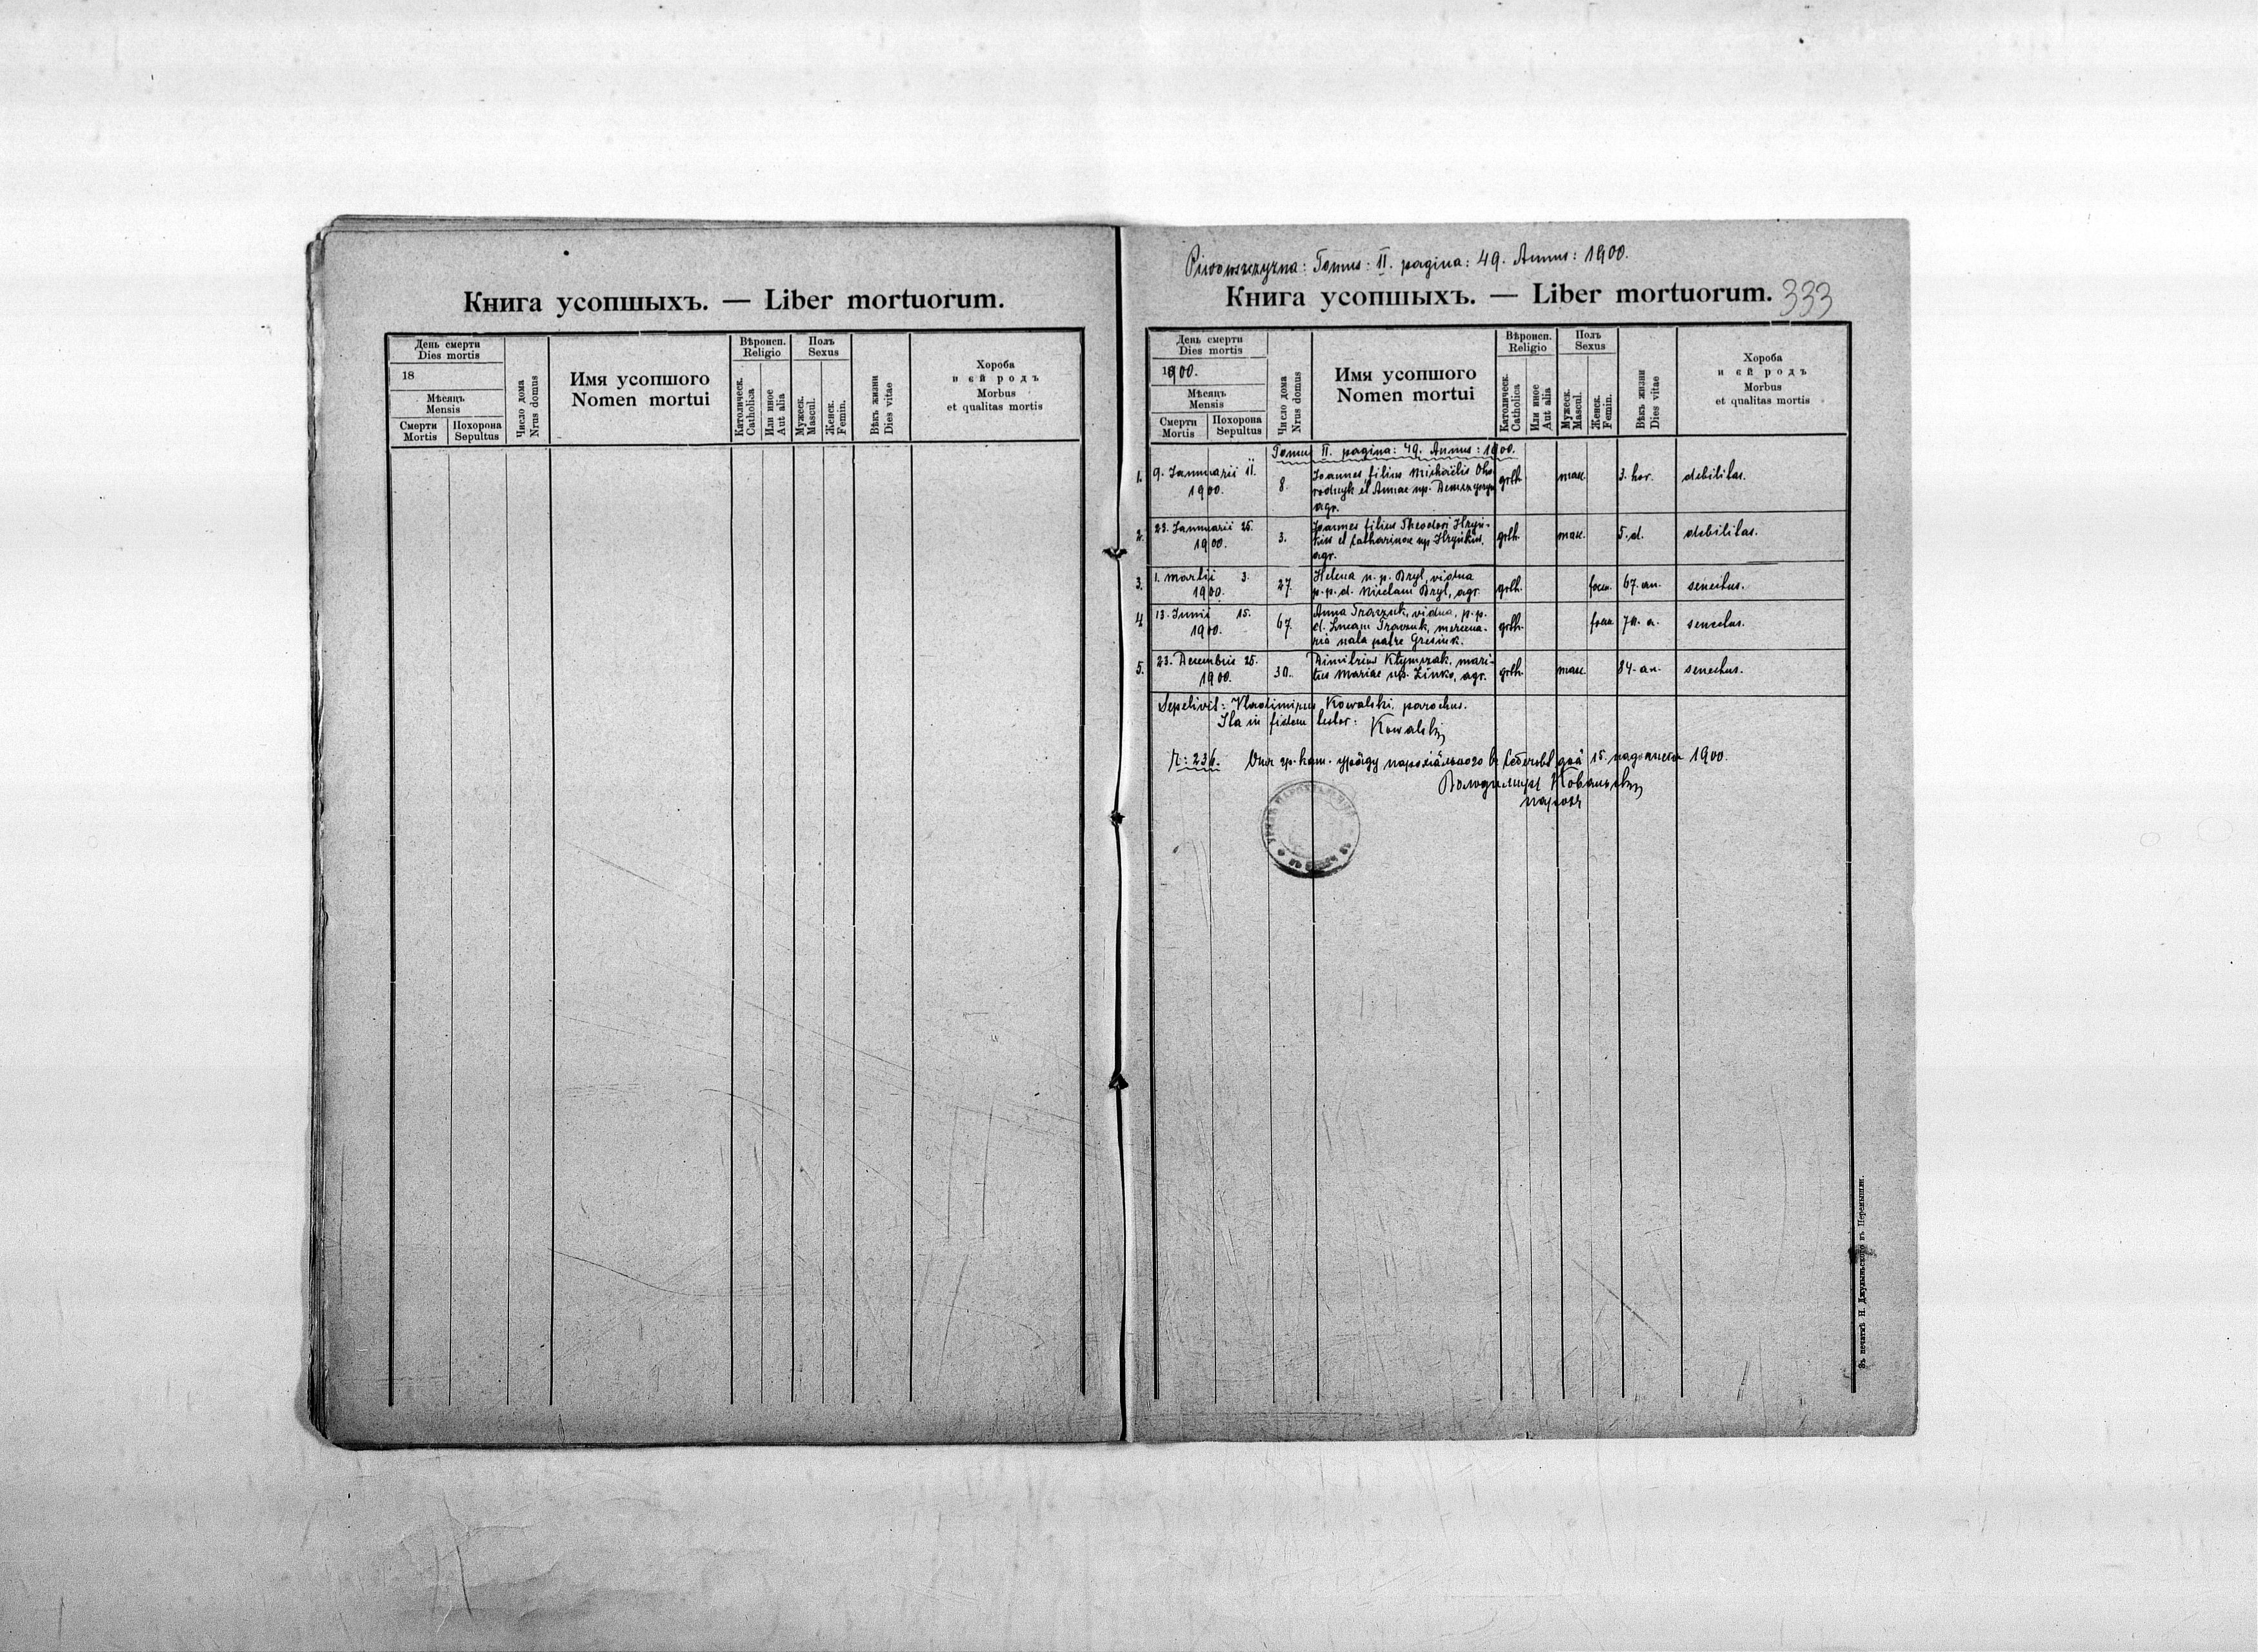 Книга усопшыхъ. — Liber mortuorum.
День смерти
Dies mortis
18
Мѣсяцъ
Mensis
Смерти
Mortis
Похорона
Sepultus
Число дома
Nrus domus
Имя усопшого
Nomen mortui
Вѣроисп.
Religio
Католическ.
Catholica
Или иное
Aut alia
Полъ
Sexus
Мужеск.
Mascul.
Женск.
Femin.
Вѣкъ жизни
Dies vitae
Хороба
и єй родъ
Morbus
et qualitas mortis
Tomus: II. pagina: 49. Annus: 1900.
Книга усопшыхъ. — Liber mortuorum. 333
День смерти
Dies mortis
1900.
Мѣсяцъ
Mensis
Смерти
Mortis
Похорона
Sepultus
Число дома
Nrus domus
Имя усопшого
Nomen mortui
Вѣроисп.
Religio
Католическ.
Catholica
Или иное
Aut alia
Полъ
Sexus
Мужеск.
Mascul.
Женск.
Femin.
Вѣкъ жизни
Dies vitae
Хороба
и єй родъ
Morbus
et qualitas mortis
Tomus II. pagina: 49. Annus: 1900.
1. 9. Januarii 11. 1900. 8. Joannes filius Michaëlis Oho-
rodnyk et Annae np.
agr. grth. masc. 3. hor. debilitas.
2. 23. Januarii 25. 1900. 3. Joannes filius Theodori Hryń-
kiw et Catharinae np. Hryńkiw,
agr. grth. masc. 5. d. debilitas.
3. 1. Martii 3. 1900. 27. Helena n. p. Bryl, vidua
p. p. d. Nicolaum Bryl, agr. grth. foem. 67. an. senectus.
4. 13. Junii 15. 1900. 67. Anna Trawzuk, vidua, p. p.
d. Trawzuk, mercena-
ria nata patre grth. foem. 70. a. senectus.
5. 23. Decembris 25. 1900. 30. Dimitrius Klymczak, mari-
tus Mariae np. Zinko, agr. grth. masc. 84. an. senectus.
Sepelivit: Vladimirus Kowalski, parochus.
Ita in fidem testor: Kowalski
Ч: 236. гр. кат. уряду парохіяльного 15. падолиста 1900.
Володимиръ Ковальскій
парохъ
Зъ печатнѣ Н. Джулыньского въ Перемышли.